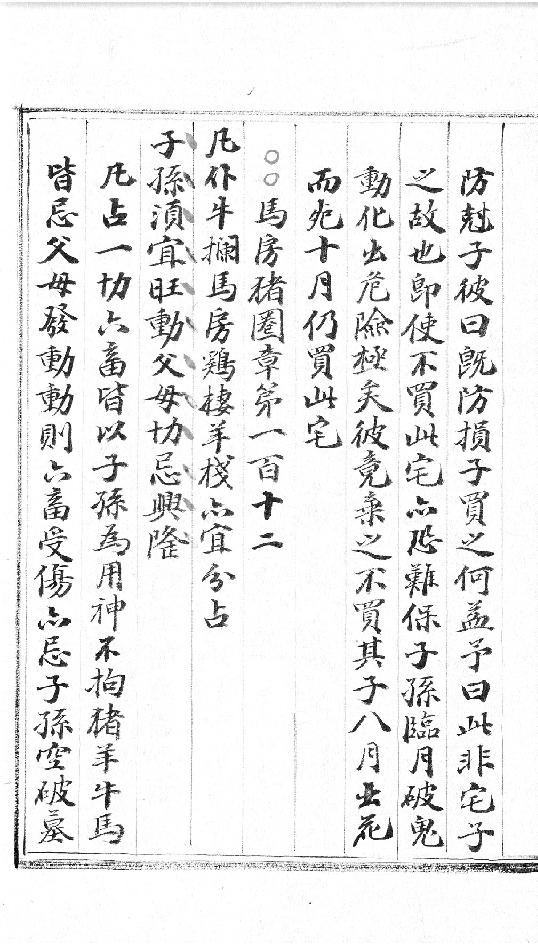 防尅子彼曰既防損子買之何益予曰此非宅子
之故也即使不買此宅亦恐難保子孫臨月破鬼
動化出危險極矣彼竟棄之不買其子八月出花
而死十月仍買此宅
○○馬房猪圈章第一百十二
凡仆牛攔馬房鷄棲羊棧亦宜分占
子孫須宜旺動父母切忌興隆
凡占一切六畜皆以子孫為用神不拘猪羊牛馬
皆忌父母發動動則六畜受傷亦忌子孫空破墓